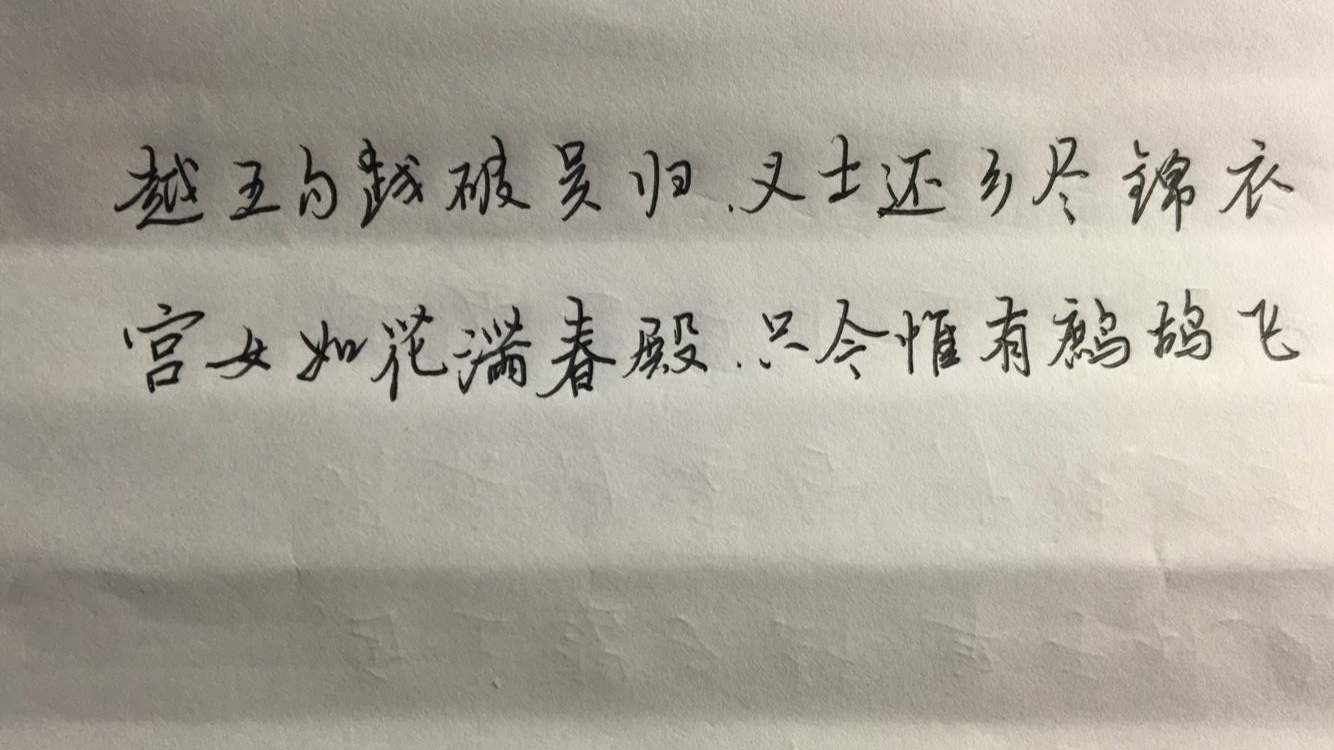 越王勾践破吴归.义士还乡尽锦衣
宫女如花满春殿.只今惟有鹧鸪飞